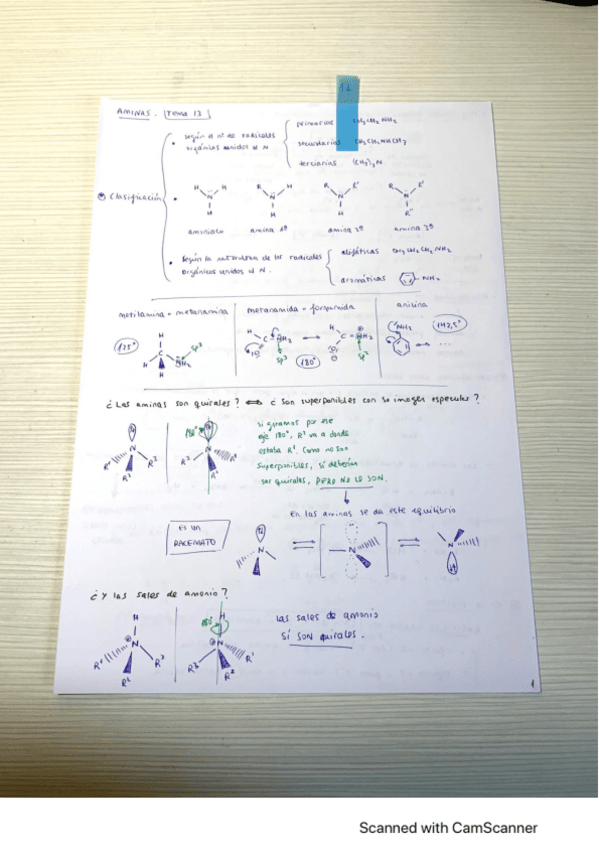 12
AMINAS. (Tema 13)
según el nº de radicales
orgánicos unidos al N
primarias CH3CH2NH2
secundarias CH3CH2NHCH3
terciarias (CH3)3N
* Clasificación
H N H H
R N H H
R N R' H
R N R' R''
amoniaco amina 1º amina 2º amina 3º
según la naturaleza de los radicales
orgánicos unidos al N.
alifáticas CH3CH2CH2NH2
aromáticas NH2
metilamina = metanamina
metanamida = formamida
anilina
125°
180°
142,5°
sp3
sp3
sp2
¿Las aminas son quirales? ⟺ ¿Son superponibles con su imagen especular?
180°
si giramos por ese
eje 180°, R3 va a donde
estaba R1. Como no son
superponibles, sí deberían
ser quirales, PERO NO LO SON.
En las aminas se da este equilibrio
ES UN
RACEMATO
¿Y las sales de amonio?
180°
Las sales de amonio
SÍ SON quirales.
1
Scanned with CamScanner